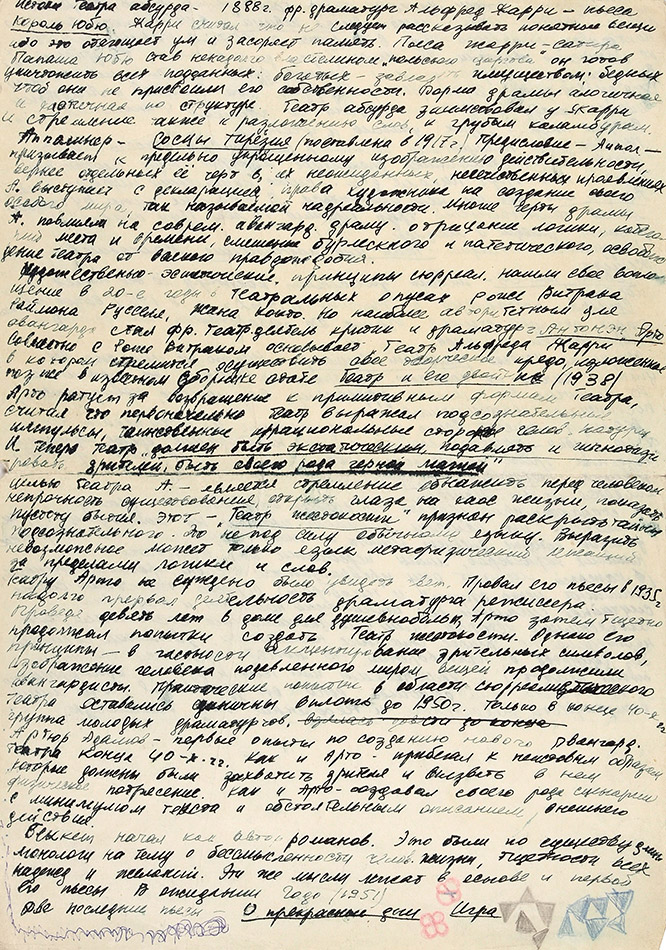 Истоки театра абсурда – 1888г. фр. драматург Альфред Жарри – пьеса
Король Юбю. Жарри считал что не следует рассказывать понятные вещи
ибо это отягощает ум и засоряет память. Пьеса Жарри – сатира
Папаша Юбю став ненадолго властелином „польского царства" он готов
уничтожить всех подданных: богатых – завладеть имуществом, бедных
чтоб они не присвоили его собственности. Форма драмы алогичная
и по структуре. Театр абсурда заимствовал у Жарри
и стремление также к разложению слов, и грубым каламбурам.
Аппалинер – Сосцы Тирезия (поставлена в 1917г.) Предисловие – Аппол –
призывает к предельно украшенному изображению действительности,
вернее отдельных её черт в их неожиданных, неестественных проявлениях
А. выступает с декларацией права художника на создание своего
особого мира, так называемой надреальности. Многие черты драмы
А. повлияли на соврем. авангард. драму. отрицание логики,
места и времени, смешение бурлескного и патетического,
дение театра от всякого правдоподобия.
Художественно-эстетические принципы сюрреал. нашли свое вопло-
щение в 20-е годы в театральных опусах Роже Витрака
Раймона Русселя, Жана Кокто. Но наиболее авторитетным для
авангарда стал фр. театр. деятель критик и драматург Антонэн Арто
Совместно с Роже Витраком основывает Театр Альфреда Жарри
в котором стремится осуществить свое творческое кредо, изложенное
позже в известном сборнике статей Театр и его двойник (1938)
Арто ратует за возвращение к примитивным формам театра,
считал что первоначально театр выражал подсознательные
импульсы, таинственные иррациональные стороны челов. натуры
И теперь театр должен быть экстатическим, подавлять и гипнотизи-
ровать зрителей, быть своего рода черной магией"
целью театра А – является стремление обнажить перед человеком
непрочность существования, открыть глаза на хаос жизни, показать
пустоту бытия. Этот – „Театр жестокости" призван раскрыть тайны
подсознательного. Это не под силу обычному языку. Выразить
невозможное может только язык метафизический
за пределами логики и слов.
Театру Арто не суждено было увидеть свет. Провал его пьесы в 1935г
надолго прервал деятельность драматурга режиссера.
Проведя девять лет в доме для душевнобольных, Арто затем тщетно
продолжал попытки создать Театр жестокости. Однако его
принципы – в частности акцентирование зрительных символов,
изображение человека подавленного миром вещей продолжили
авангардисты. Практические попытки в области сюрреалистического
театра оставались единичны вплоть до 1950г. Только в конце 40-х гг
группа молодых драматургов.
Артюр Адамов – первые опыты по созданию нового авангард.
театра конца 40-х гг. как и Арто – прибегал к неистовым образам
которые должны были захватить зрителя и вызвать в нем
физическое потрясение. Как и Арто – создавал своего рода сценарии
с минимумом текста и обстоятельным описанием внешнего
действия
Беккет начал как автор романов. Это были по существу длин.
монологи на тему о бессмысленности челов. жизни, тщетности всех
надежд и желаний. Эти же мысли лежат в основе и первой
его пьесы В ожидании Годо (1951)
Две последние пьесы О прекрасные дни Игра